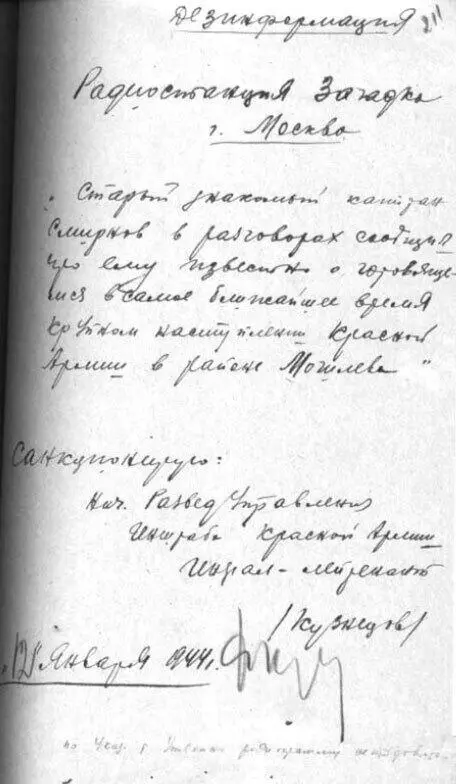 Дезинформация
Радиостанция Загадка
г. Москва
"Старый знакомый капитан
Смирнов в разговорах сообщил
что ему известно о готовяще-
мся в самое ближайшее время
крупном наступлении Красной
Армии в районе Могилева"
Санкционирую:
Нач. РазведУправления
Генштаба Красной Армии
Генерал-лейтенант
/Кузнецов/
"12" Января 1944 г.